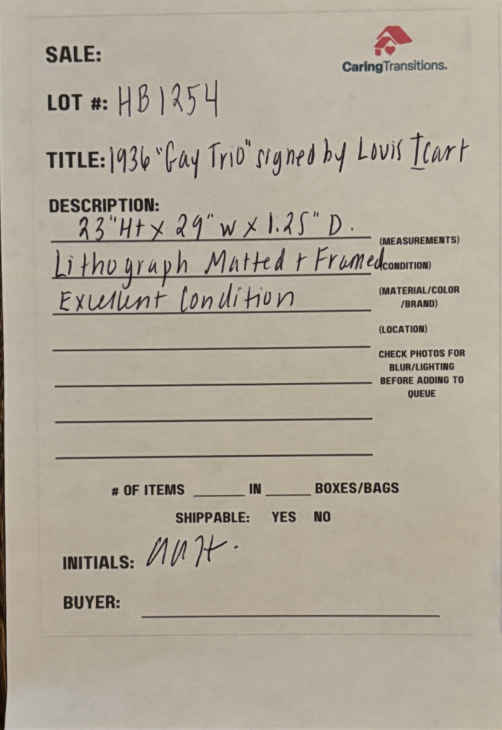 SALE:
CaringTransitions.
LOT #: HB1254
TITLE: 1936 "Gay Trio" signed by Louis Icart
DESCRIPTION:
23"Ht x 29" W x 1.25" D.
(MEASUREMENTS)
Lithograph Matted + Framed
(CONDITION)
Excellent Condition
(MATERIAL/COLOR
/BRAND)
(LOCATION)
CHECK PHOTOS FOR
BLUR/LIGHTING
BEFORE ADDING TO
QUEUE
# OF ITEMS ______ IN ______ BOXES/BAGS
SHIPPABLE: YES NO
INITIALS:
BUYER: